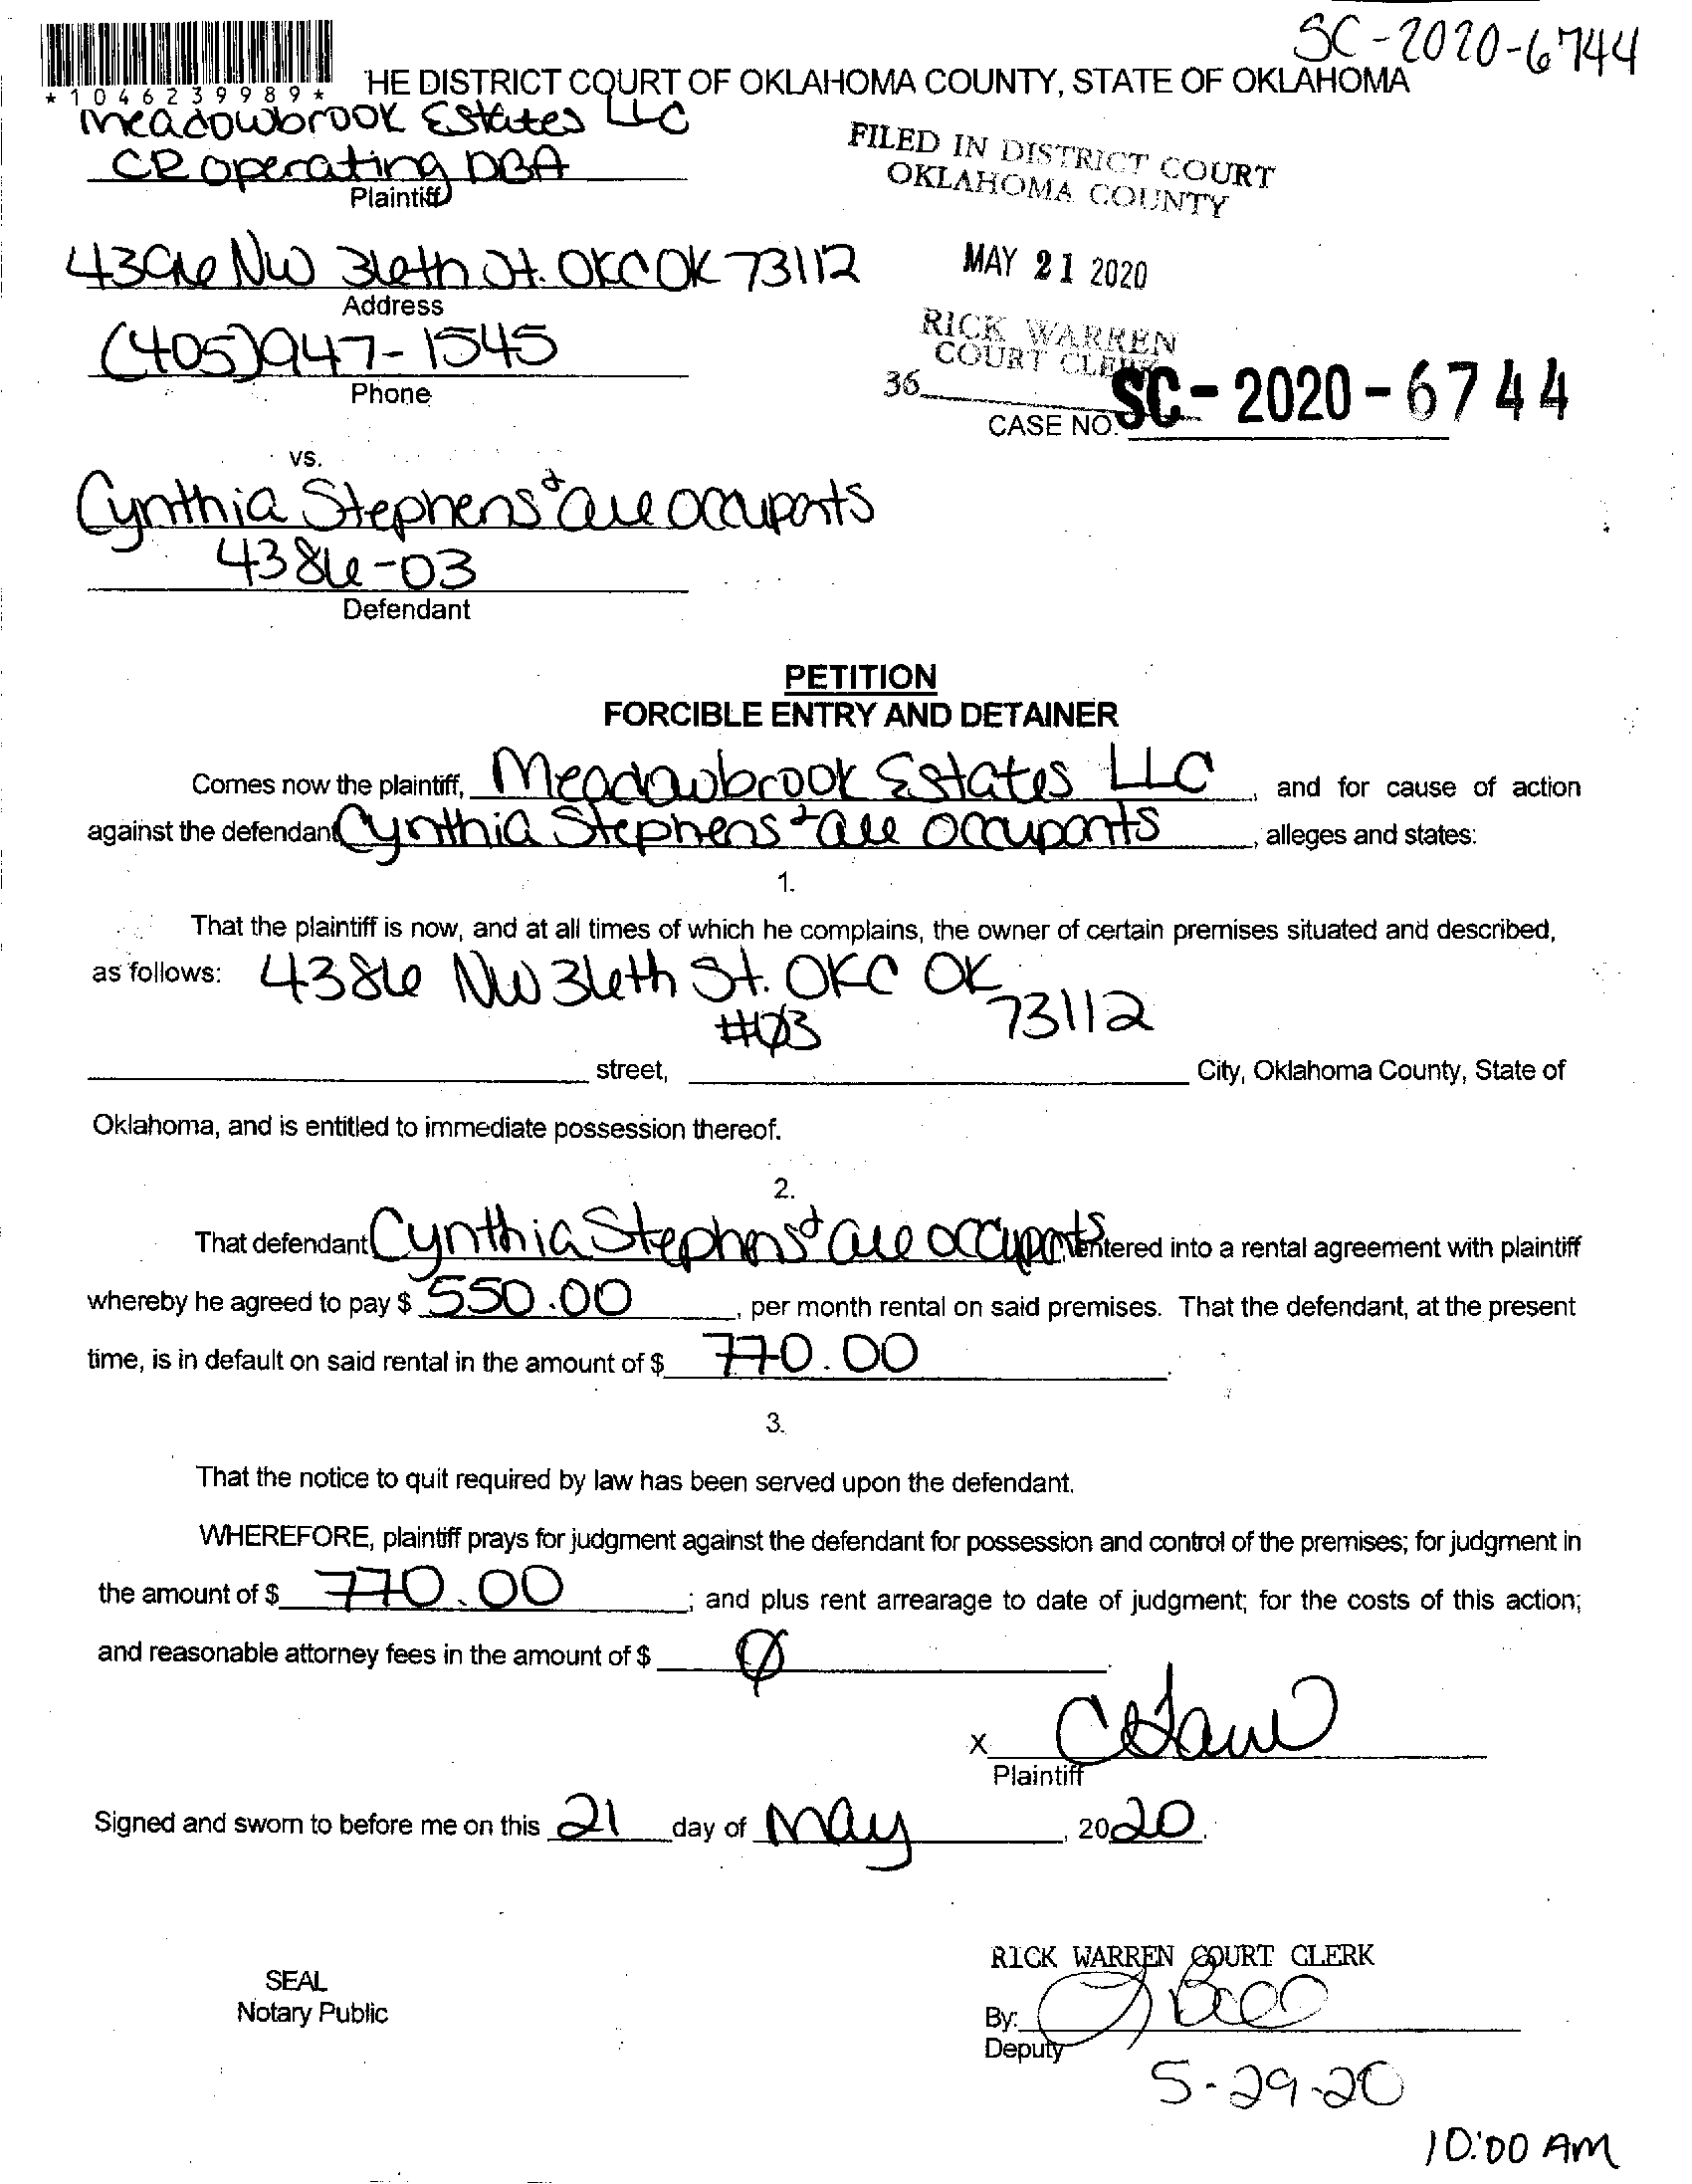 SC-2020-6744
*1046239989*
HE DISTRICT COURT OF OKLAHOMA COUNTY, STATE OF OKLAHOMA
Meadowbrook Estates LLC
CR Operating DBA
Plaintiff
FILED IN DISTRICT COURT
OKLAHOMA COUNTY
4396 NW 36th St. OKC OK 73112
Address
MAY 21 2020
(405)947-1545
Phone
RICK WARREN
COURT CLERK
36
CASE NO. SC-2020-6744
vs.
Cynthia Stephens & all occupants
4386-03
Defendant
PETITION
FORCIBLE ENTRY AND DETAINER
Comes now the plaintiff, Meadowbrook Estates LLC, and for cause of action
against the defendant Cynthia Stephens & all occupants, alleges and states:
1.
That the plaintiff is now, and at all times of which he complains, the owner of certain premises situated and described,
as follows: 4386 NW 36th St. OKC OK
#03 73112
street, City, Oklahoma County, State of
Oklahoma, and is entitled to immediate possession thereof.
2.
That defendant Cynthia Stephens & all occupants entered into a rental agreement with plaintiff
whereby he agreed to pay $ 550.00, per month rental on said premises. That the defendant, at the present
time, is in default on said rental in the amount of $ 770.00.
3.
That the notice to quit required by law has been served upon the defendant.
WHEREFORE, plaintiff prays for judgment against the defendant for possession and control of the premises; for judgment in
the amount of $ 770.00; and plus rent arrearage to date of judgment; for the costs of this action;
and reasonable attorney fees in the amount of $ Ø.
X
Plaintiff
Signed and sworn to before me on this 21 day of May, 2020.
RICK WARREN COURT CLERK
SEAL
Notary Public
By:
Deputy
5-29-20
10:00 AM